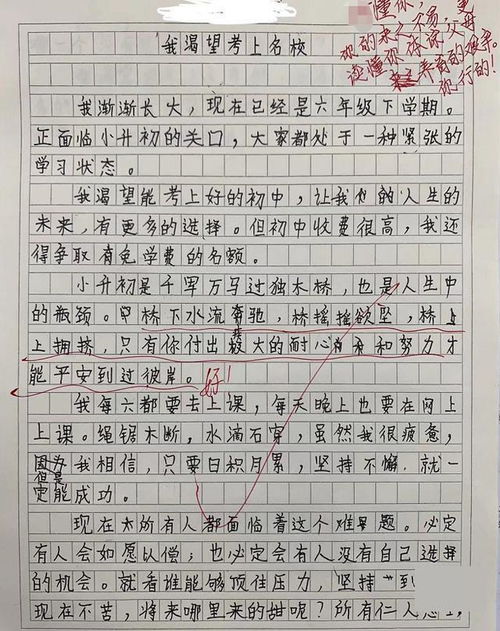 懂你,
你的来之不易,父母
读懂你,陈你
养育的艰辛。
你行的!
我渴望考上名校
我渐渐长大,现在已经是六年级下学期。
正面临小升初的关口,大家都处于一种紧张的
学习状态。
我渴望能考上好的初中,让我们的人生的
未来,有更多的选择。但初中收费很高,我还
得争取有免学费的名额。
小升初是千军万马过独木桥,也是人生中
的瓶颈。桥下水流奔驰,桥摇摇欲坠,桥上
上拥挤,只有你付出极大的耐心和努力才
能平安到过彼岸。好!
我每六都要去上课,每天晚上也要在网上
上课。绳锯木断,水滴石穿,虽然我很疲惫,
但是我相信,只要日积月累,坚持不懈,就一
定能成功。
现在所有人都面临着这个难题。必定
有人会如愿以偿;也必定会有人没有自己选择
的机会。就看谁能够顶住压力,坚持到
现在不苦,将来哪里来的甜呢?所有仁人志士,